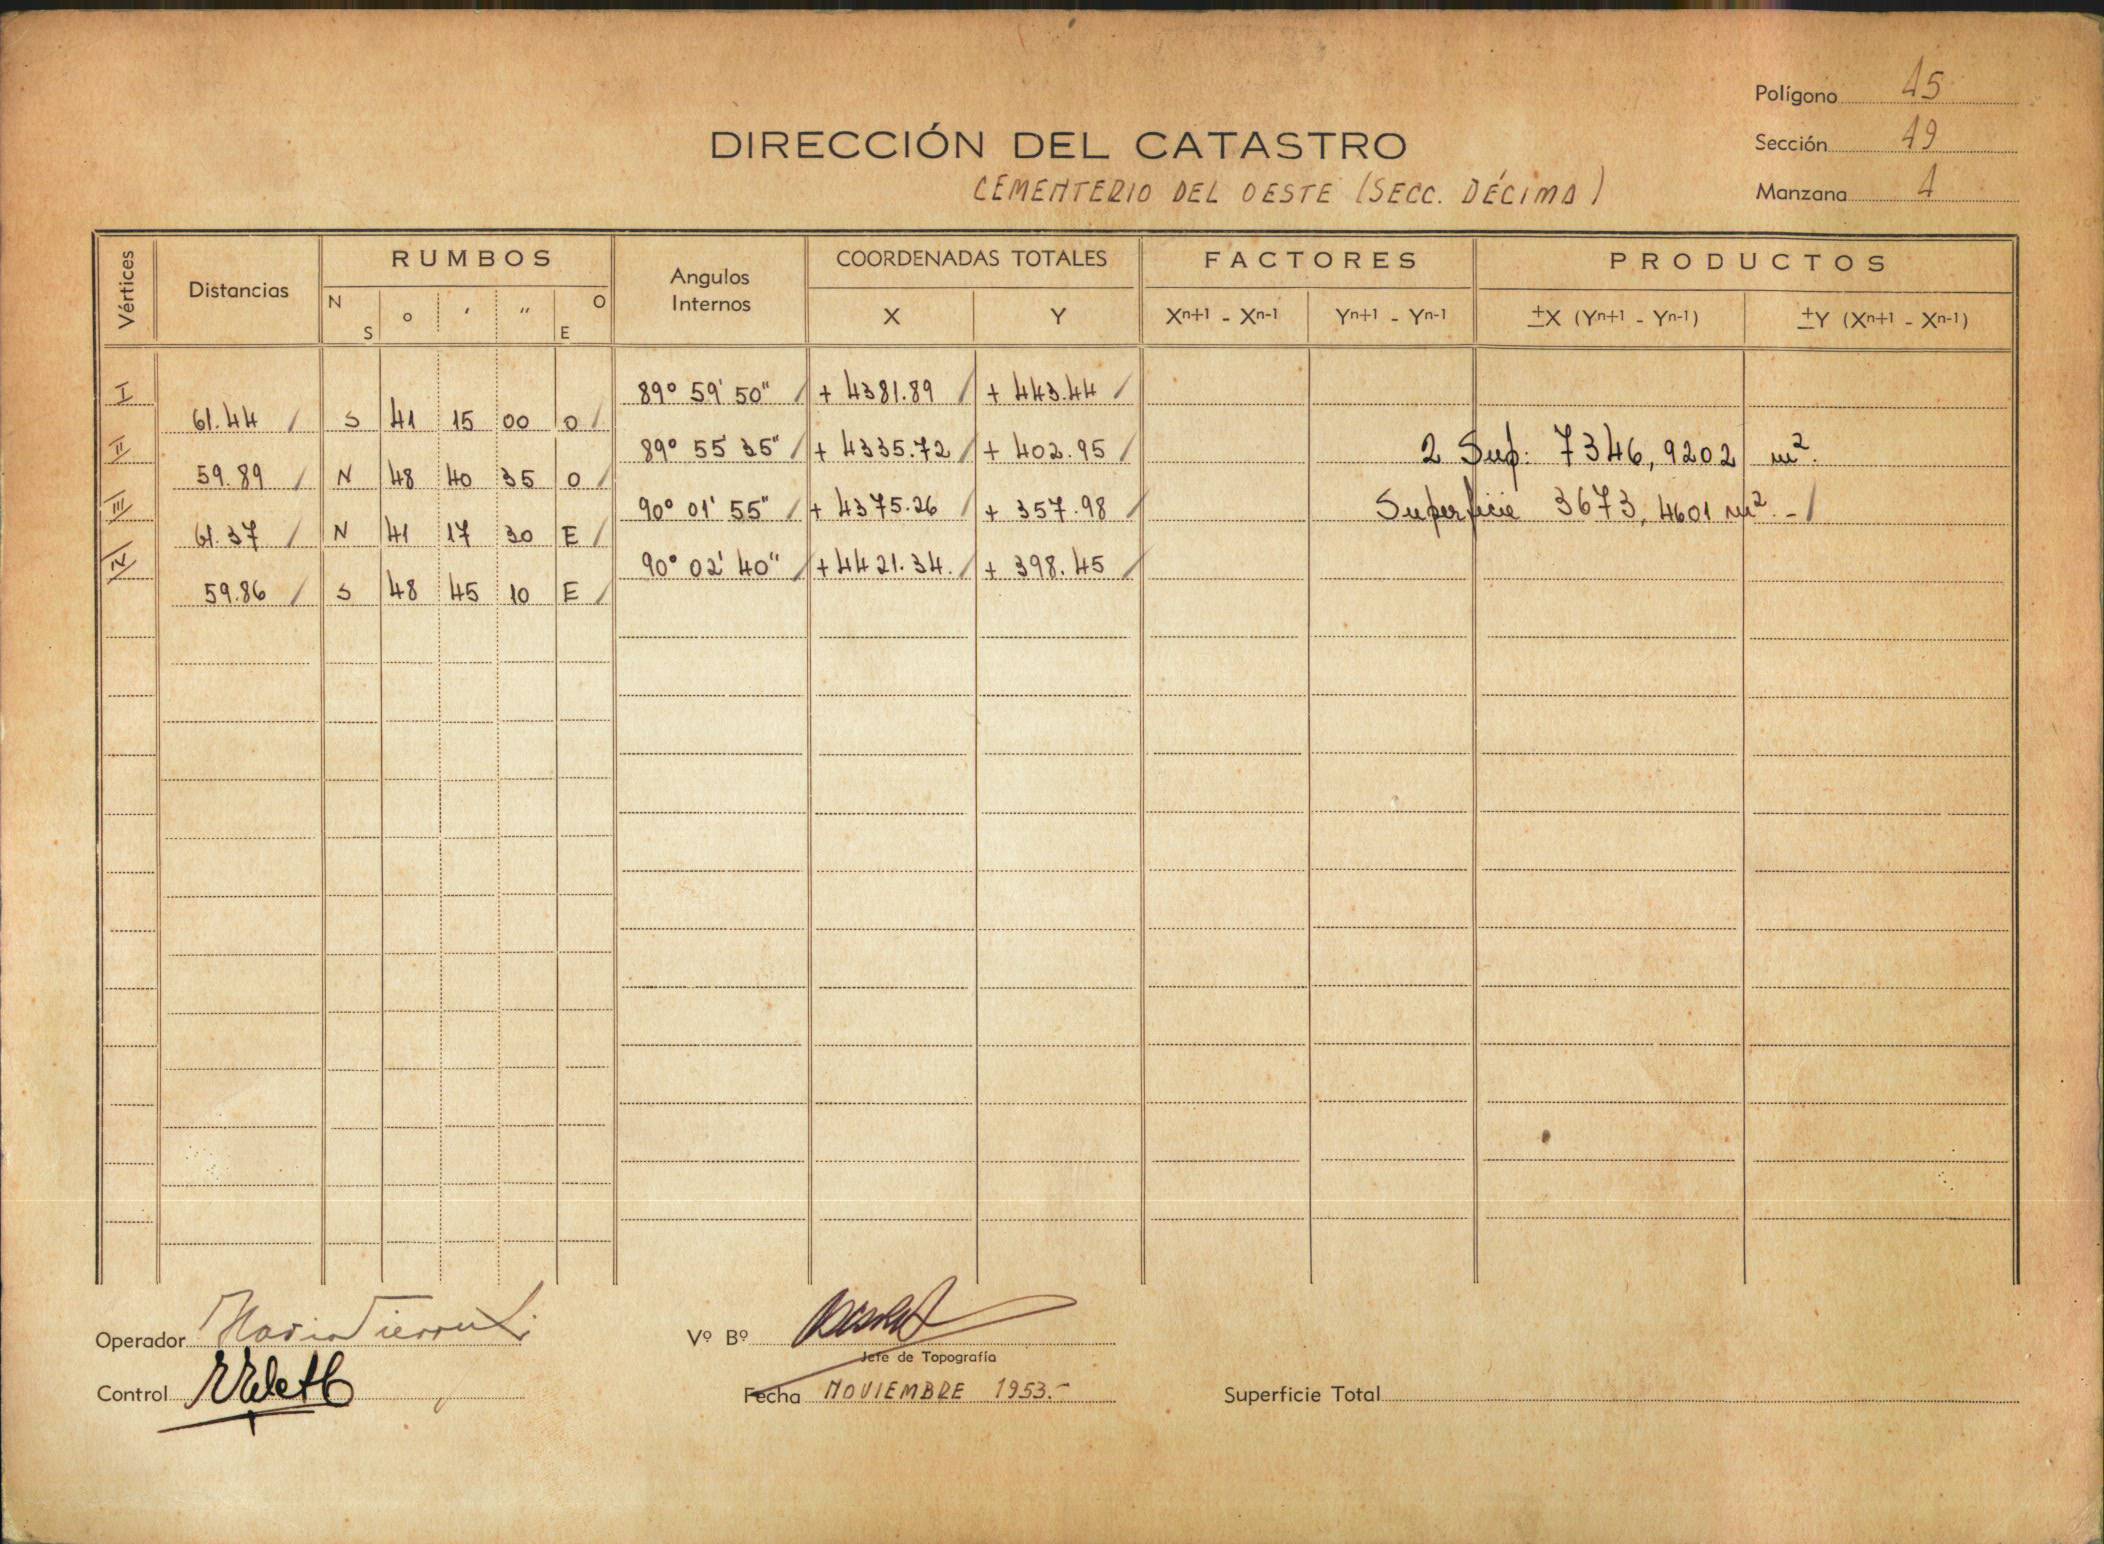 Polígono 15
DIRECCIÓN DEL CATASTRO
Sección 19
CEMENTERIO DEL OESTE (SECC. DÉCIMA)
Manzana 1
Vértices Distancias RUMBOS Angulos Internos COORDENADAS TOTALES FACTORES PRODUCTOS
N S o ' '' O E X Y Xn+1 - Xn-1 Yn+1 - Yn-1 ±X (Yn+1 - Yn-1) ±Y (Xn+1 - Xn-1)
I 89° 59' 50" / + 4381.89 / + 443.44 /
61.44 / S 41 15 00 O /
II 89° 55' 35" / + 4335.72 / + 402.95 / 2 Sup: 7346,9202 m².
59.89 / N 48 40 35 O /
III 90° 01' 55" / + 4375.26 + 357.98 / Superficie 3673,4601 m².- /
61.37 / N 41 17 30 E /
IV 90° 02' 40" / + 4421.34. / + 398.45 /
59.86 / S 48 45 10 E /
Operador
Vº Bº
Jefe de Topografía
Control
Fecha NOVIEMBRE 1953.-
Superficie Total